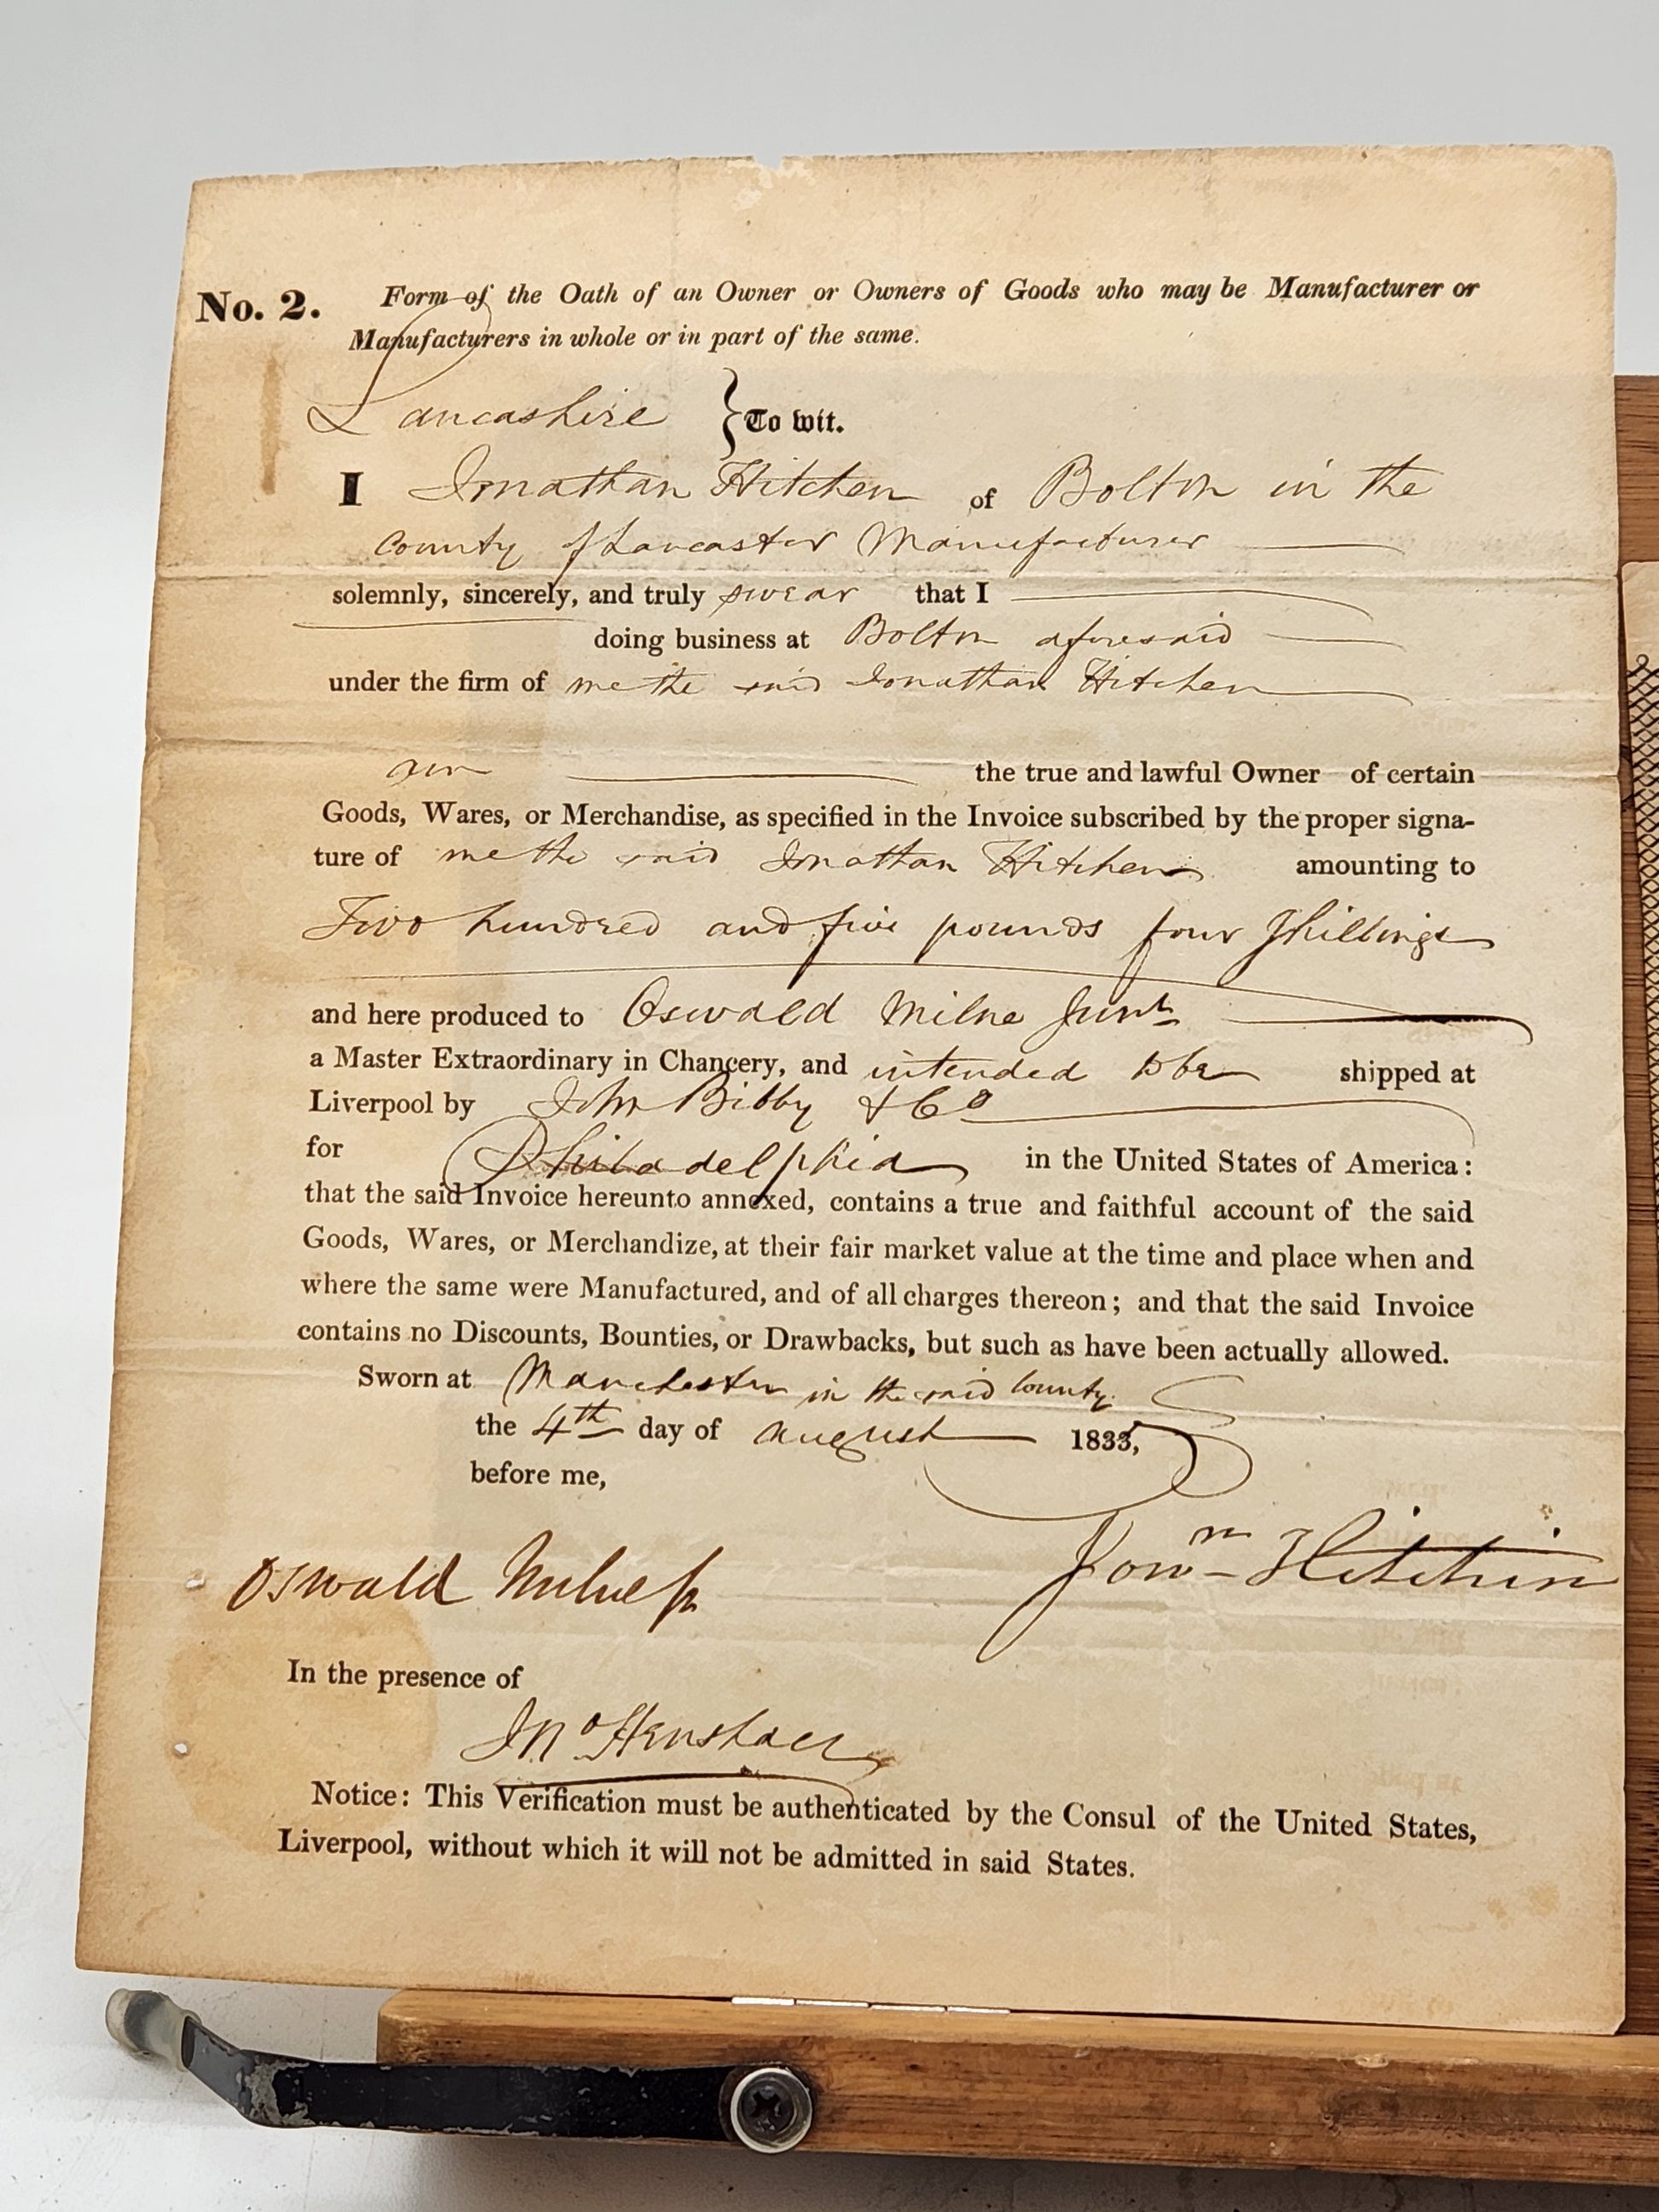 No. 2. Form of the Oath of an Owner or Owners of Goods who may be Manufacturer or
Manufacturers in whole or in part of the same.
Lancashire } To wit.
I Jonathan Hitchen of Bolton in the
County of Lancaster Manufacturer
solemnly, sincerely, and truly swear that I
doing business at Bolton aforesaid
under the firm of me the said Jonathan Hitchen
am the true and lawful Owner of certain
Goods, Wares, or Merchandise, as specified in the Invoice subscribed by the proper signa-
ture of me the said Jonathan Hitchen amounting to
Two hundred and five pounds four Shillings
and here produced to Oswald Milne Junr
a Master Extraordinary in Chancery, and intended to be shipped at
Liverpool by John Bibby & Co
for Philadelphia in the United States of America:
that the said Invoice hereunto annexed, contains a true and faithful account of the said
Goods, Wares, or Merchandize, at their fair market value at the time and place when and
where the same were Manufactured, and of all charges thereon; and that the said Invoice
contains no Discounts, Bounties, or Drawbacks, but such as have been actually allowed.
Sworn at Manchester in the said County
the 4th day of August 1833,
before me,
Oswald Milne Jr Jonn Hitchin
In the presence of
Jno Henshaw
Notice: This Verification must be authenticated by the Consul of the United States,
Liverpool, without which it will not be admitted in said States.